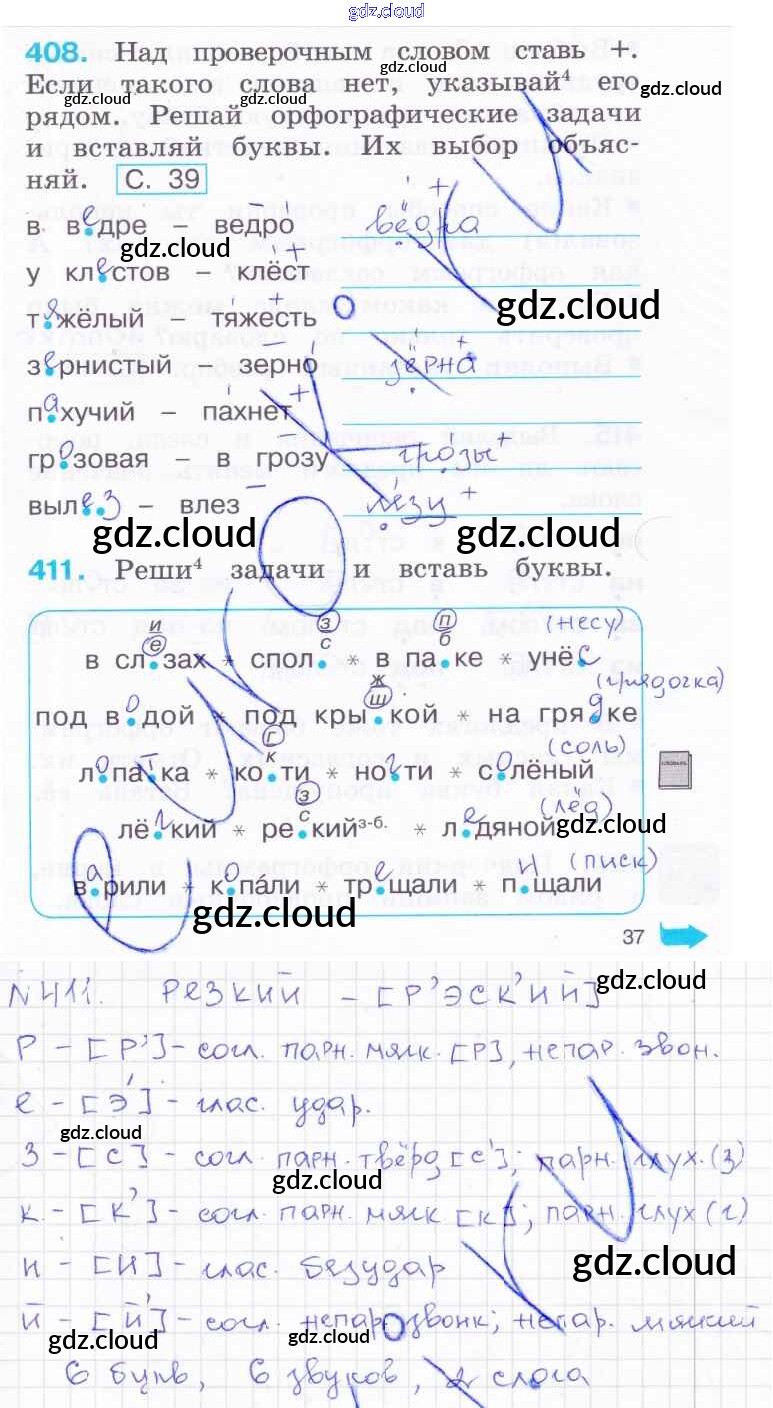 gdz.cloud
408. Над проверочным словом ставь +.
gdz.cloud
Если такого слова нет, указывай⁴ его
gdz.cloud gdz.cloud gdz.cloud gdz.cloud
рядом. Решай орфографические задачи
и вставляй буквы. Их выбор объяс-
няй. С. 39
в ведре – ведро вёдра
gdz.cloud
у клестов – клёст
gdz.cloud
тяжёлый – тяжесть
зернистый – зерно зёрна
пахучий – пахнет
грозовая – в грозу грозы
вылез – влез лезу
gdz.cloud gdz.cloud
411. Реши⁴ задачи и вставь буквы.
и з п (несу)
е с б
в сл.зах * спол. * в па.ке * унёс
ж (грядочка)
ш
под водой * под кры.кой * на грядке
г (соль)
к
лопатка * ко.ти * ногти * солёный
з (лёд)
с
лёгкий * ре.кий з-б. * ледяной
gdz.cloud
(писк)
варили * копали * трещали * пищали
gdz.cloud
37
gdz.cloud
N 411. Резкий – [р’эск’ий]
р – [р’] – согл. парн. мягк. [р], непар. звон.
е – [э́] – глас. удар.
gdz.cloud
з – [с] – согл. парн. твёрд [с’]; парн. глух. (з)
gdz.cloud
к – [к’] – согл. парн. мягк [к]; парн. глух (г)
gdz.cloud
и – [и] – глас. безудар
й – [й’] – согл. непар. звонк; непар. мягкий
gdz.cloud gdz.cloud gdz.cloud
6 букв, 6 звуков, 2 слога